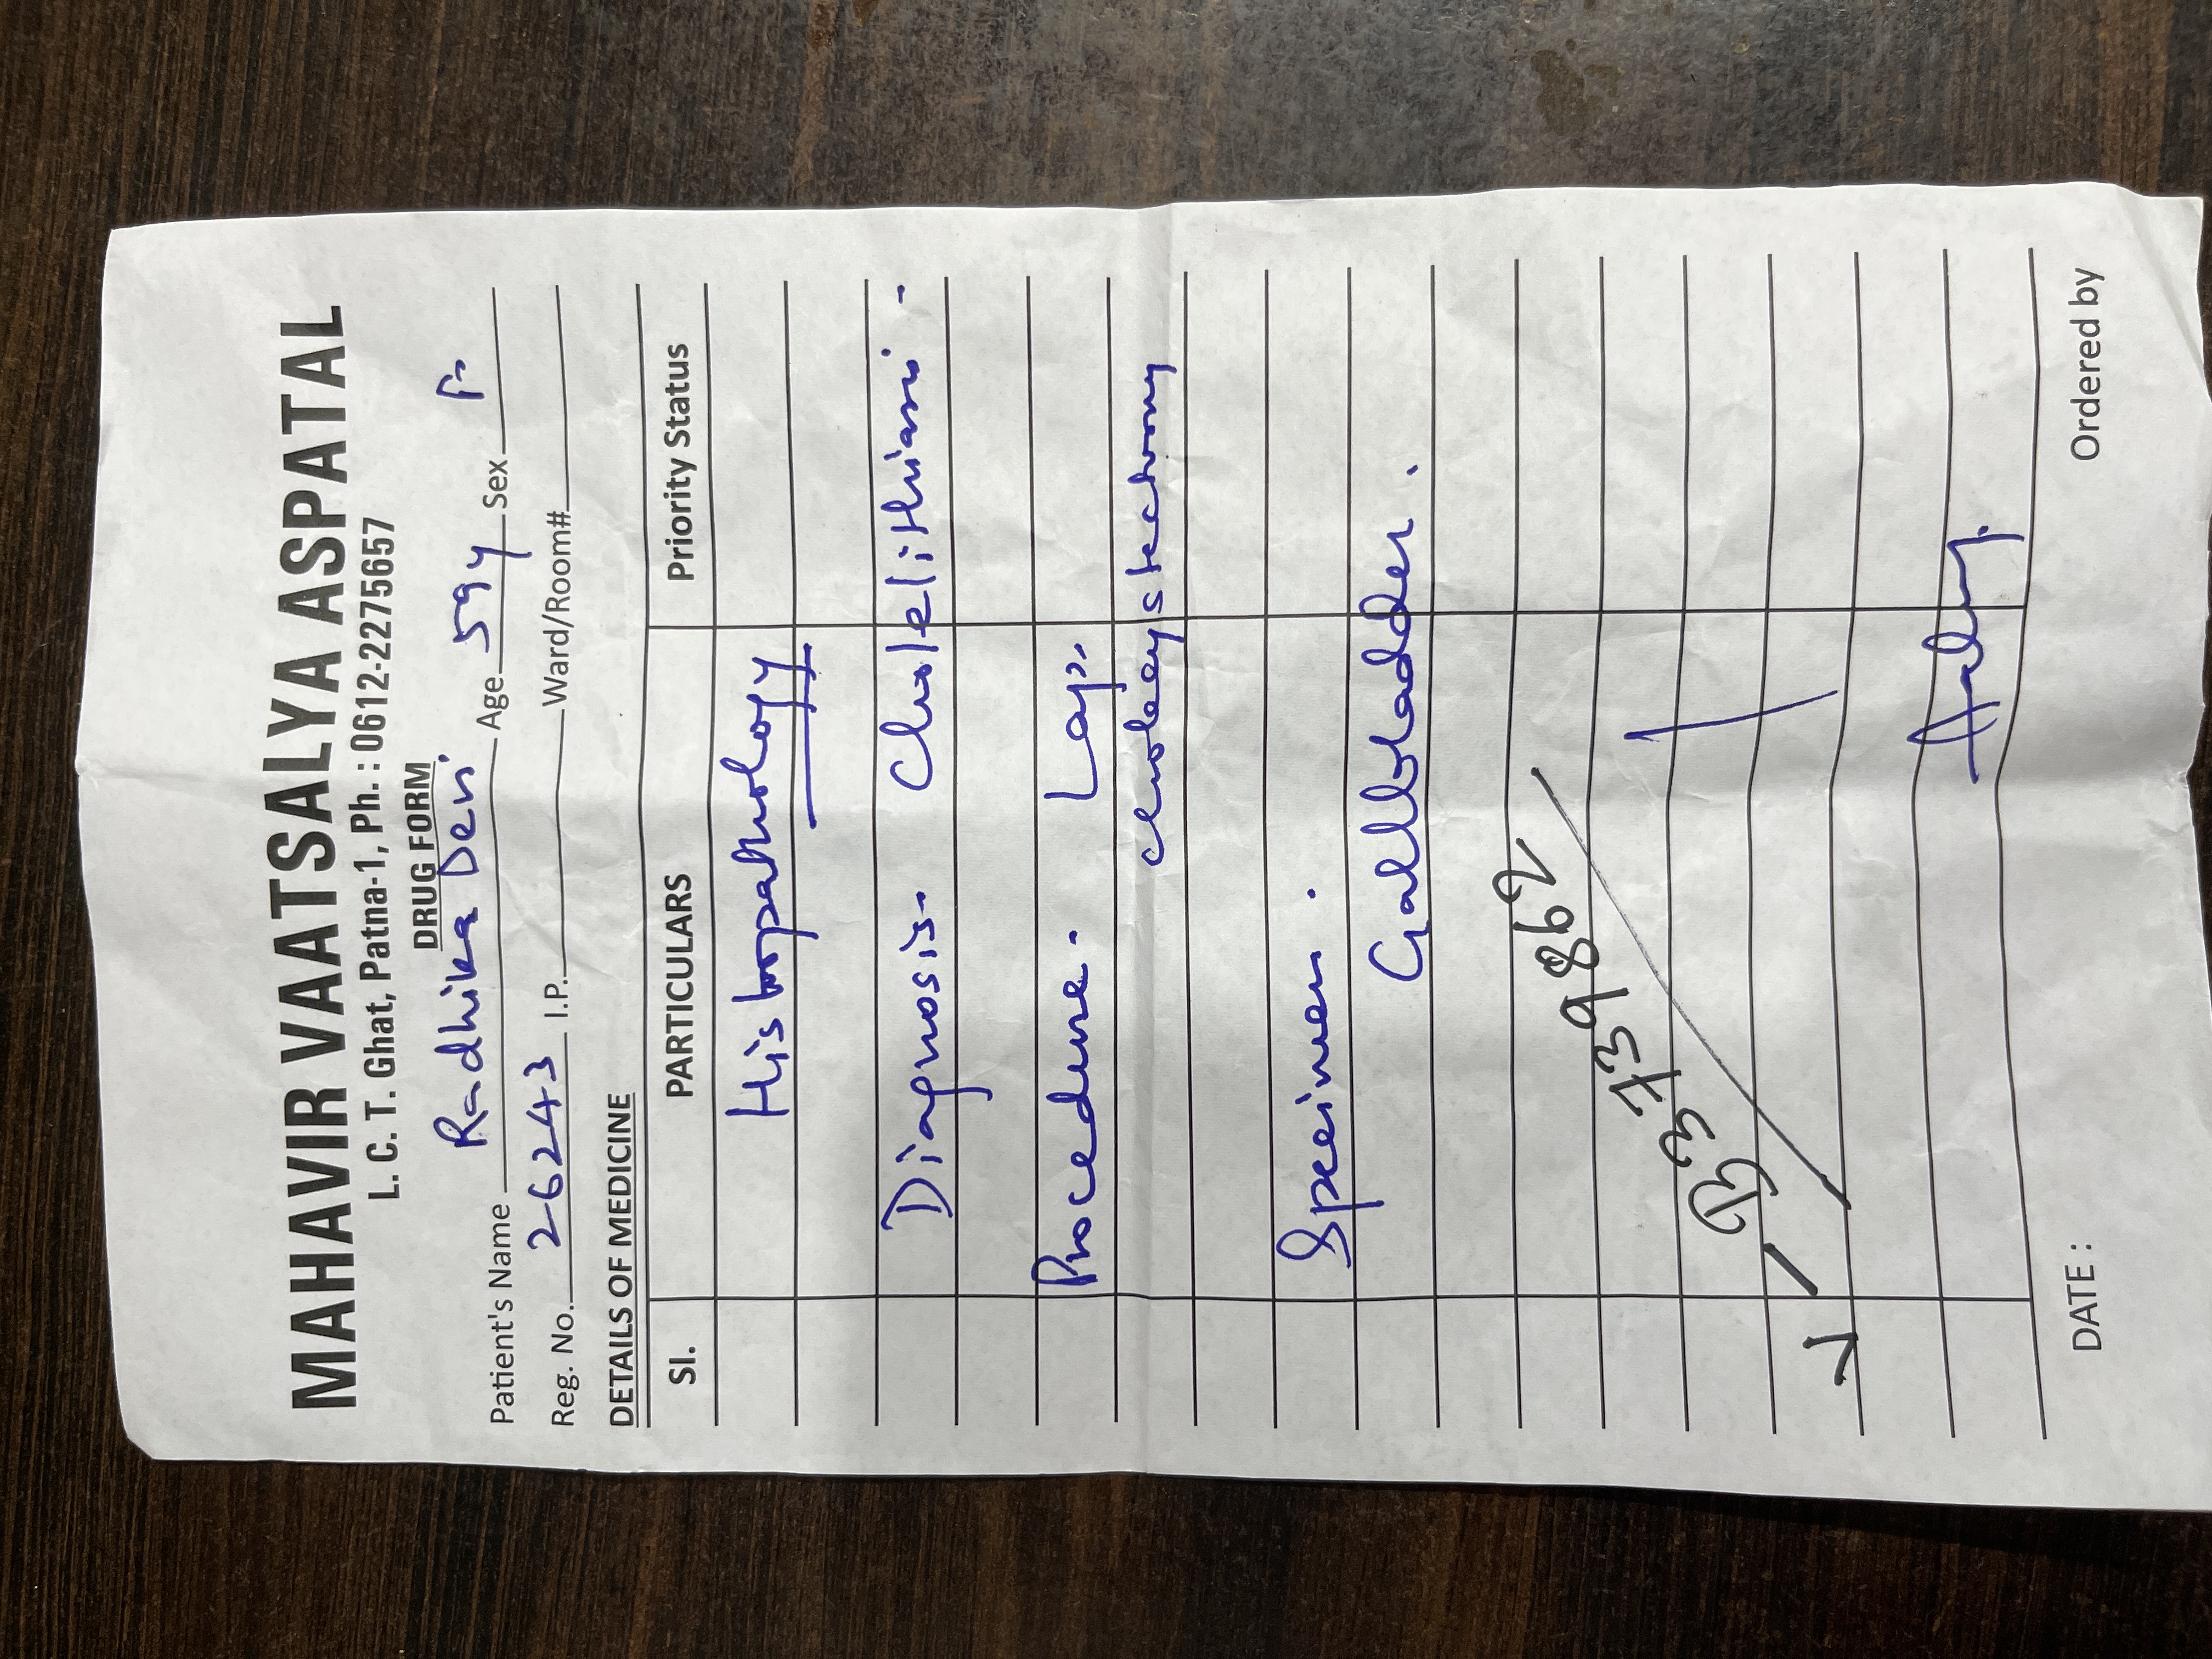 MAHAVIR VAATSALYA ASPATAL
L. C. T. Ghat, Patna-1, Ph. : 0612-2275657
DRUG FORM
Patient's Name Radhika Devi Age 59y Sex F
Reg. No. 26243 I.P. Ward/Room#
DETAILS OF MEDICINE
Sl. PARTICULARS Priority Status
Histopathology
Diagnosis- Cholelithiasis -
Procedure - Lap.
cholecystectomy
Specimen -
Gallbladder.
739862
DATE : Ordered by